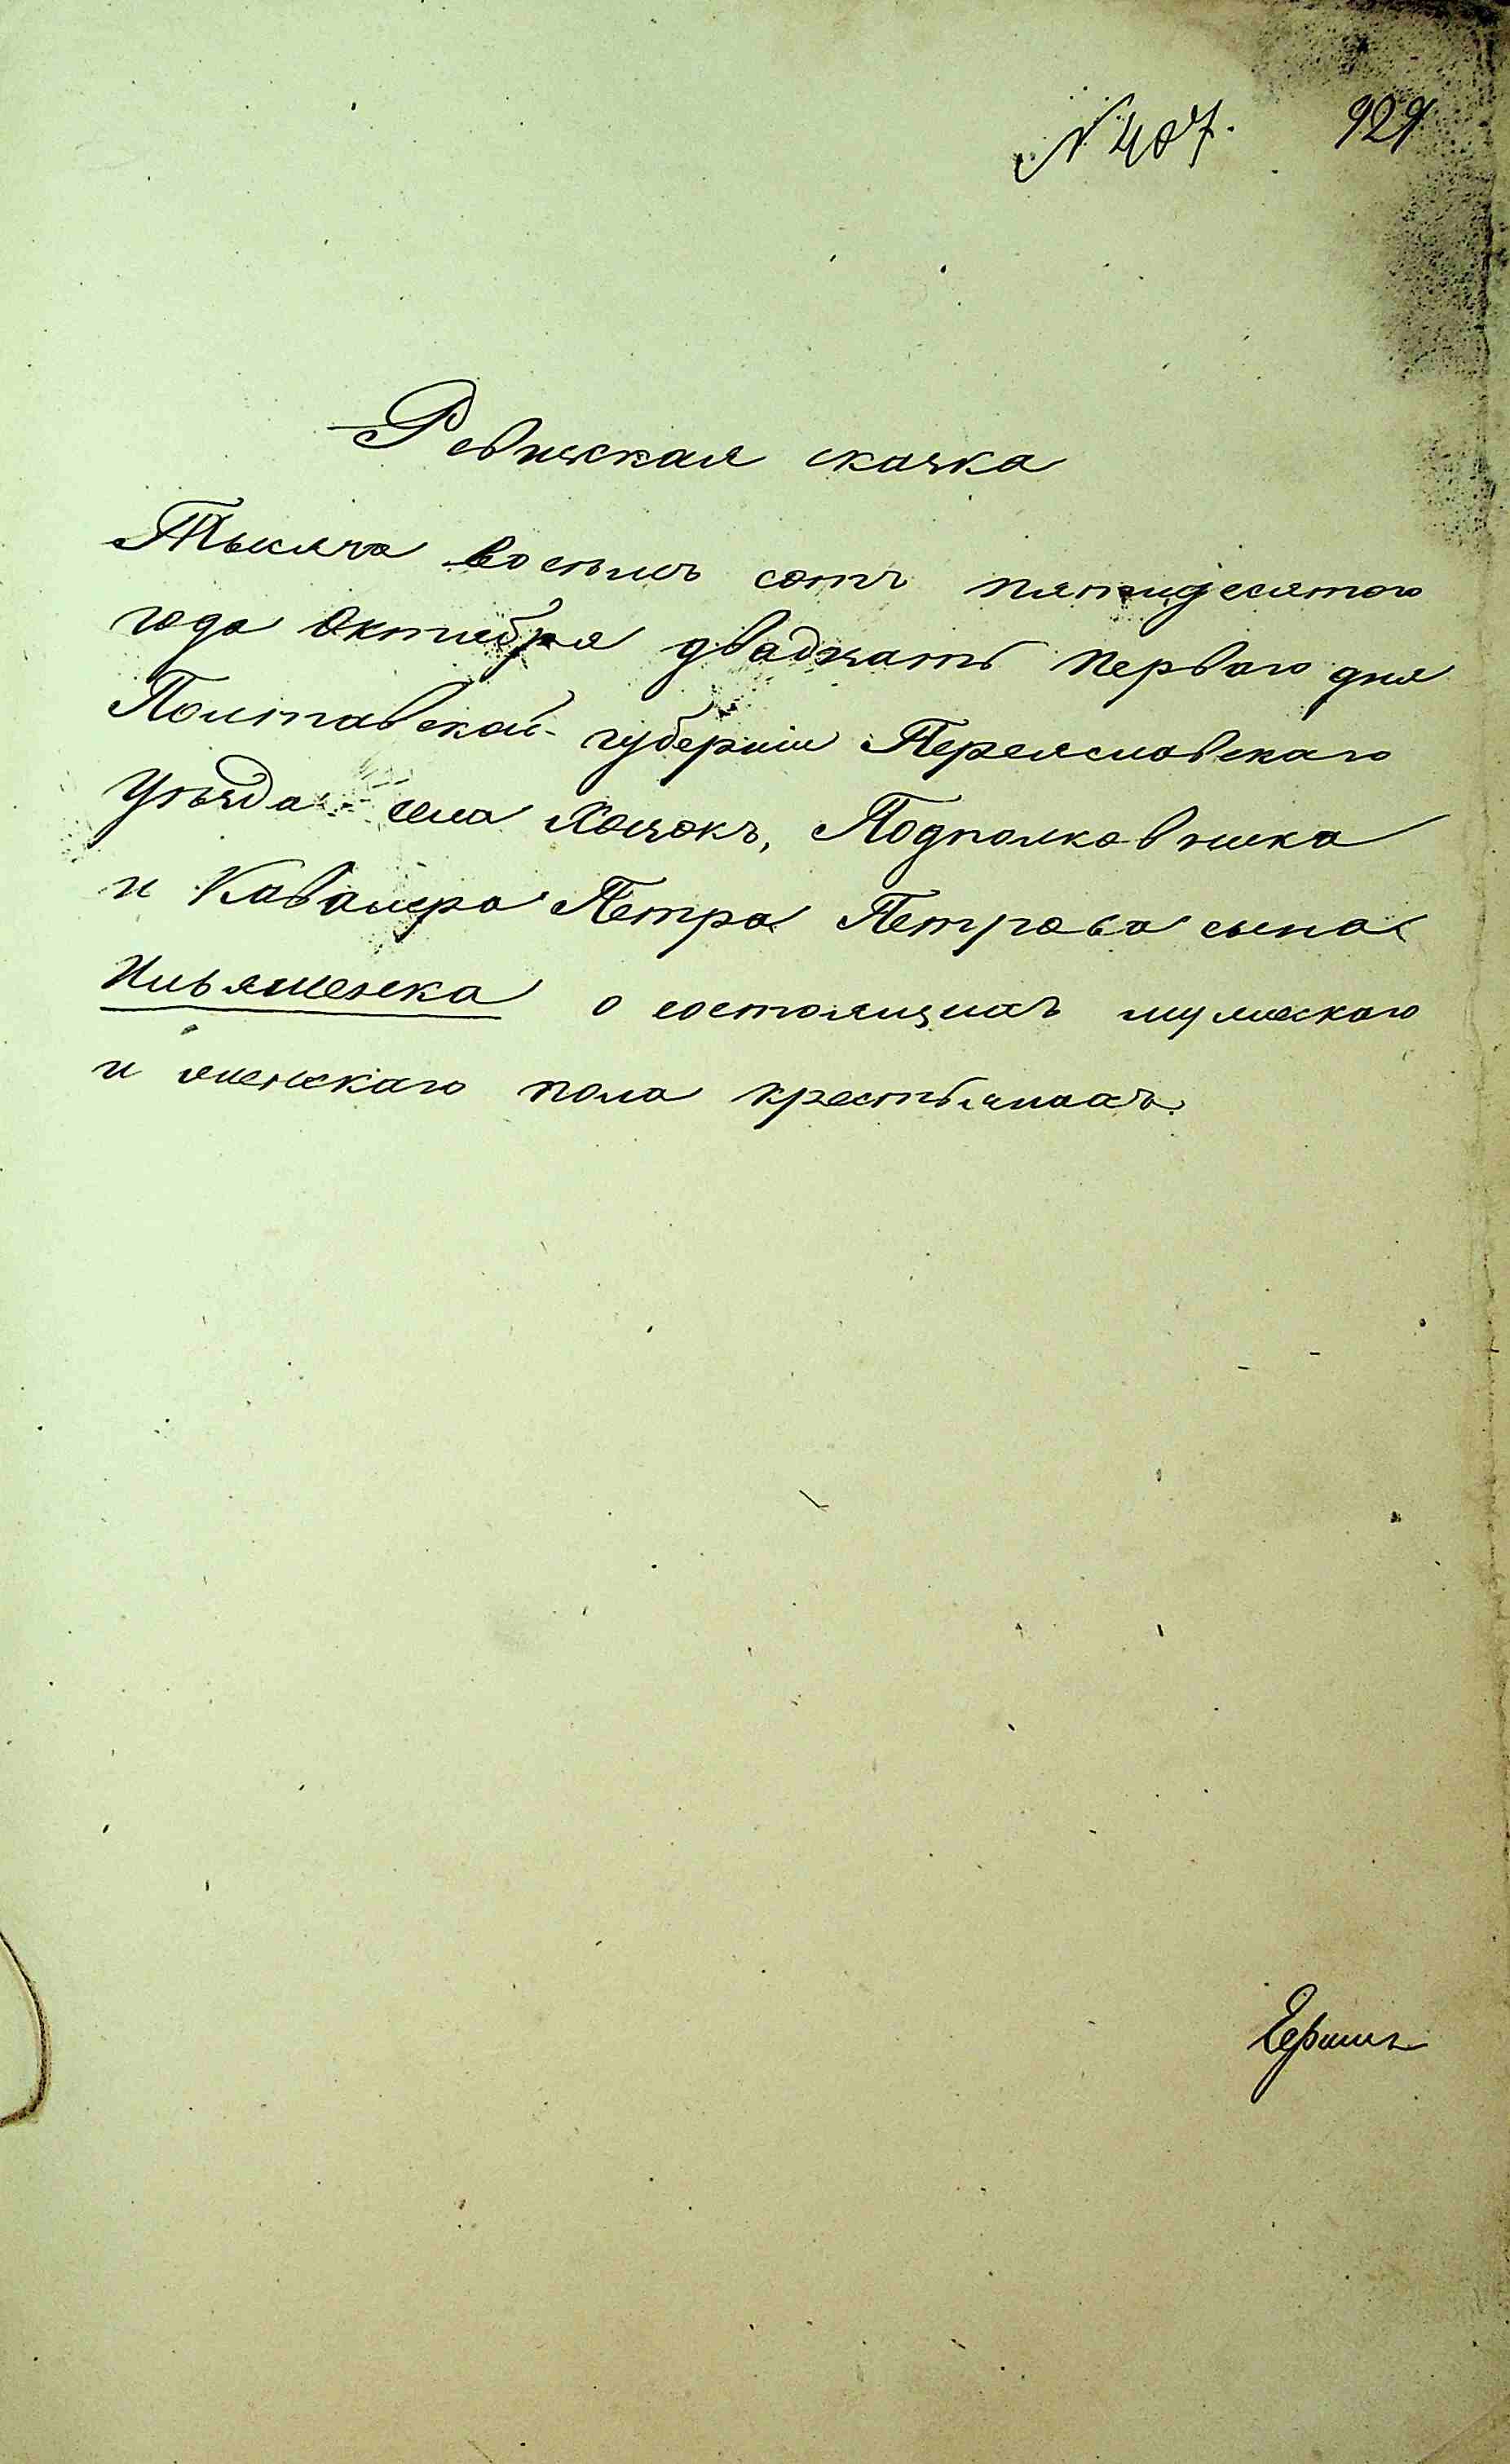 № 407. 929
Ревижская скаска
Тысяча восемь сотъ пятидесятого
года Октября двадцать перваго дня
Полтавской губерніи Переяславскаго
уѣзда села Хоцокъ, Подполковника
и Кавалера Петра Петрова сына
Ильяшенка о состоящихъ мужескаго
и женскаго пола крестьянахъ.